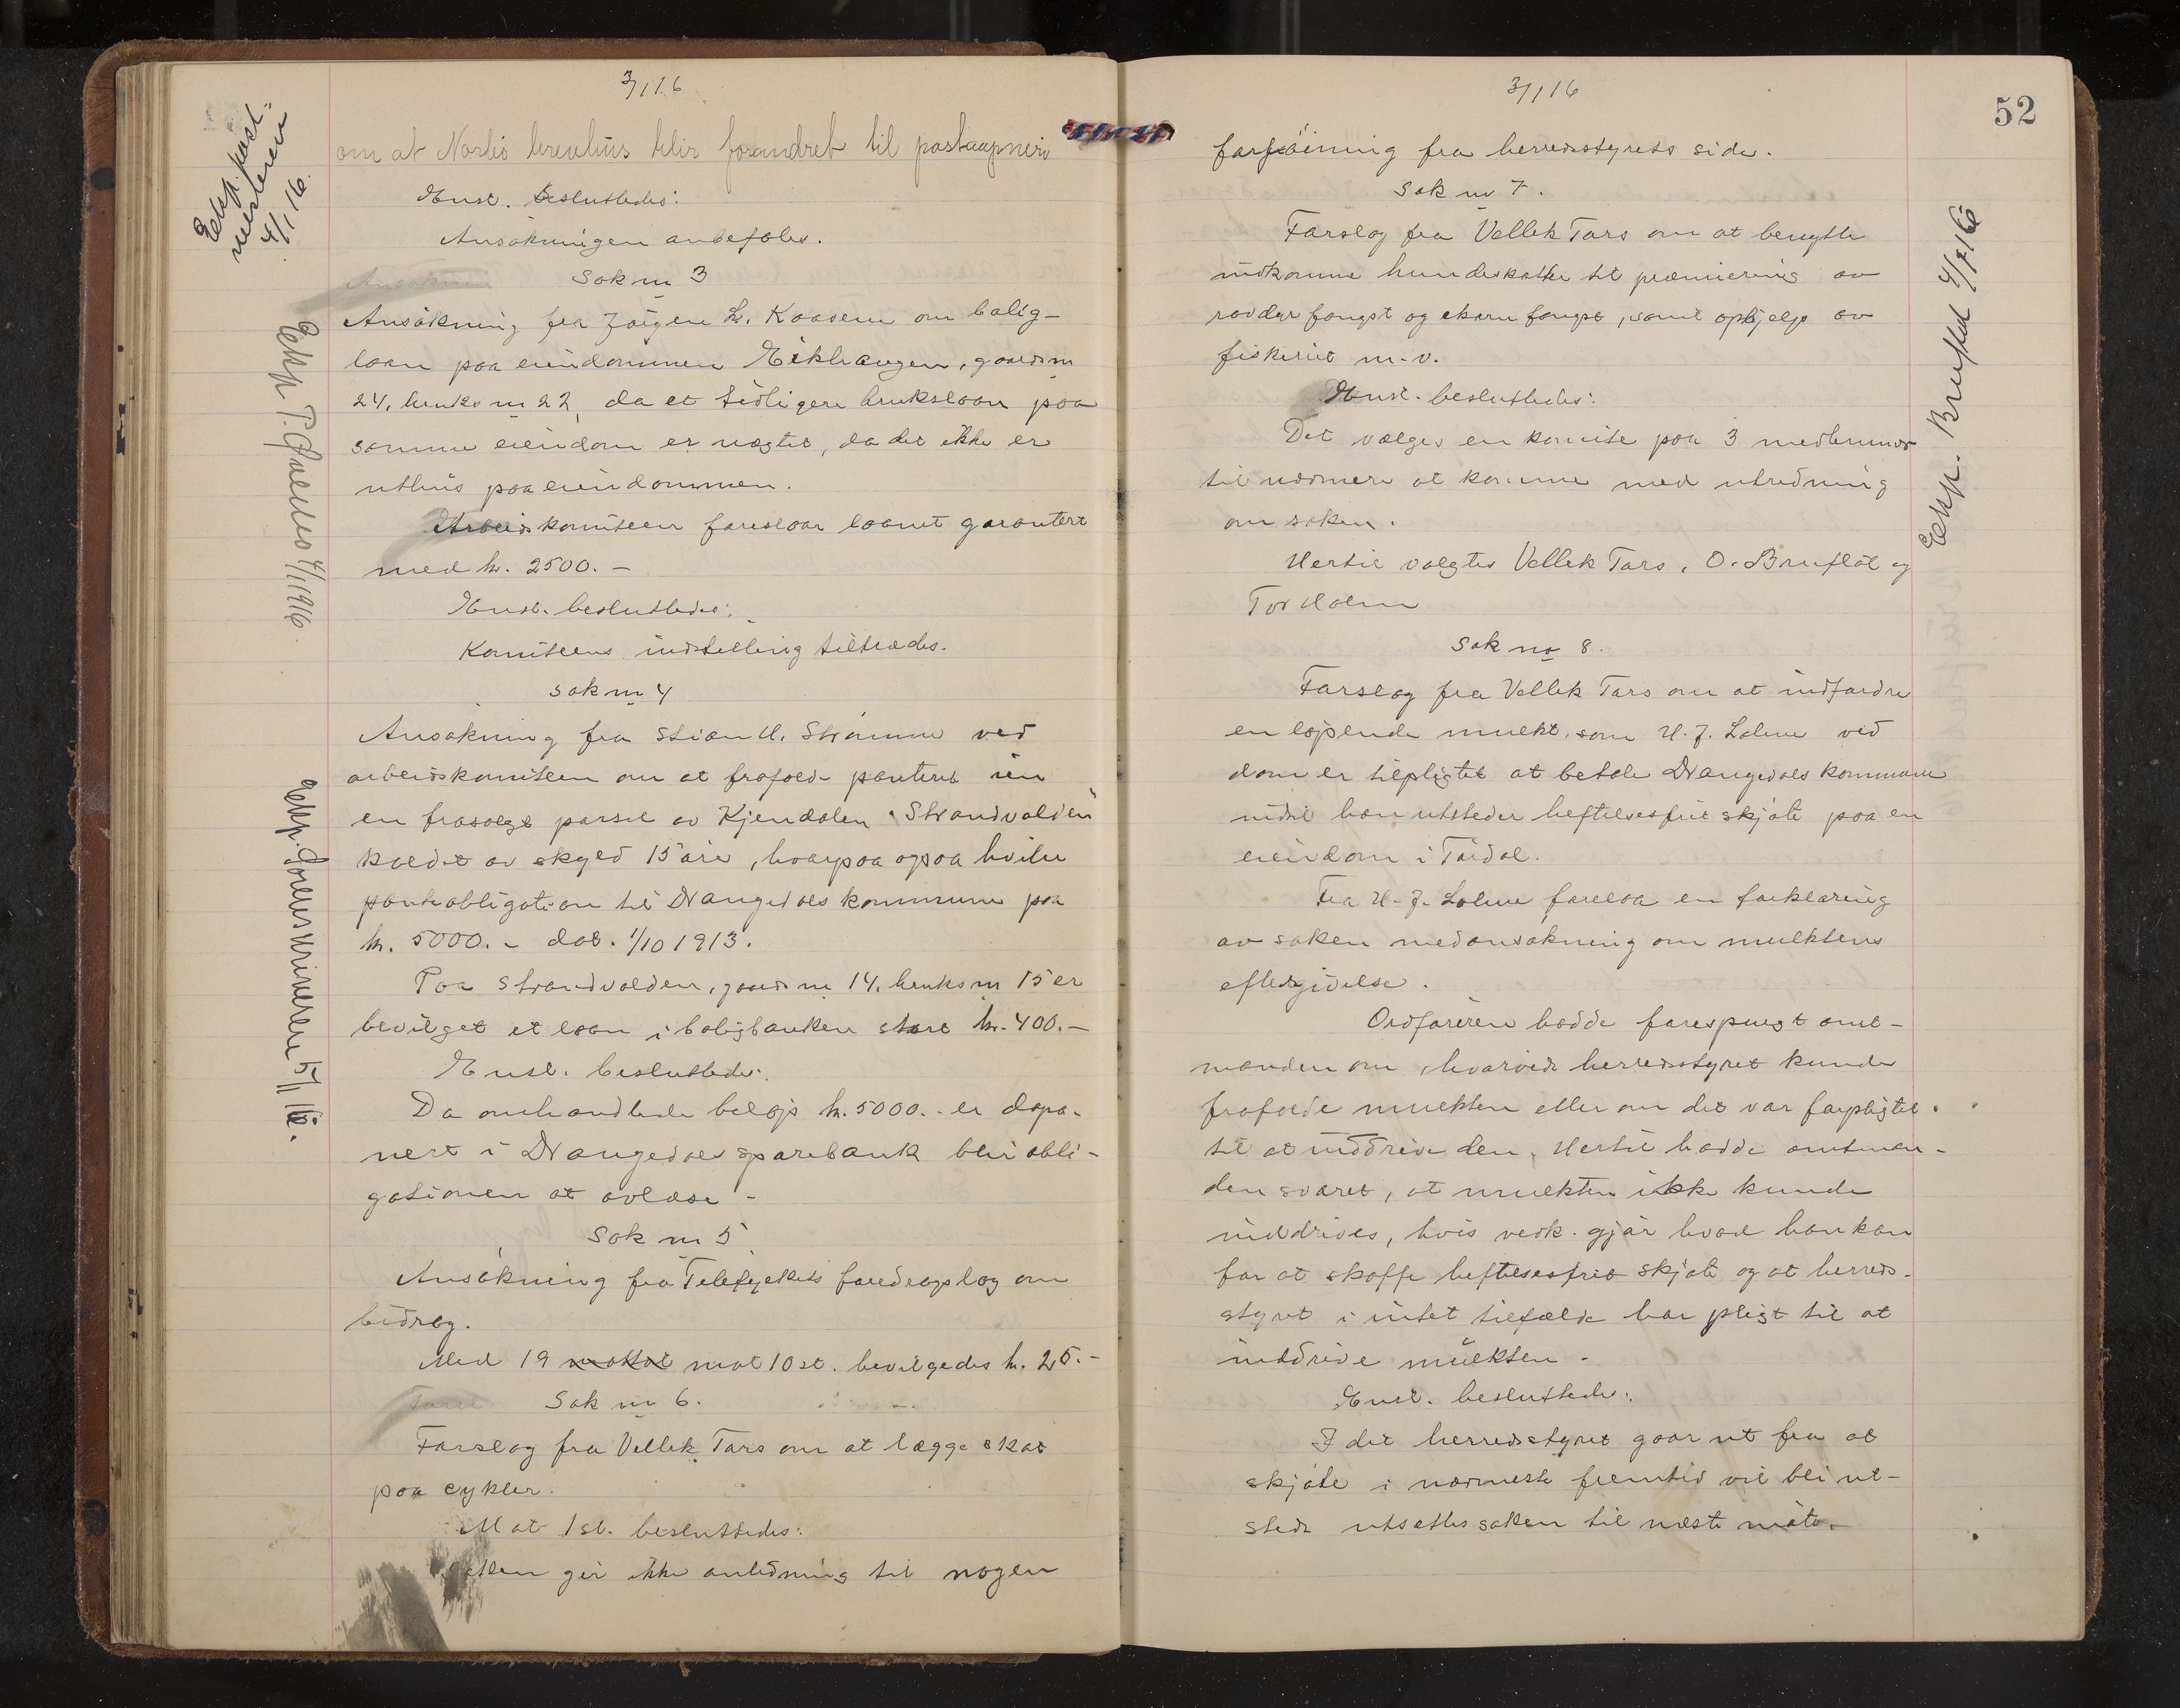 3/1 16
om at Norbø brevhus blir forandret til postaapneri
Enst. besluttedes:
Ansøkningen anbefales.
Sak nr 3
Ansøkning fra Jørgen L. Kaasene om bolig-
laan paa eiendommen Eikhaugen, gaards nr
24, bruks nr 22, da et tidligere brukslaan paa
samme eiendom er nægtet, da det ikke er
uthus paa eiendommen.
Arbeidskomiteen foreslaar laanet garantert
med kr. 2500.-
Enst. besluttedes:
Komiteens indstilling tiltrædes.
Sak nr 4
Ansøkning fra Stian H. Strømme ved
arbeidskomiteen om at frafalde panteret i en
en frasolgt parsel av Kjendalen "Strandvolden"
kaldet av skyld 15 øre, hvorpaa ogsaa hviler
panteobligation til Drangedals kommune paa
kr. 5000.- dat. 1/10 1913.
Paa Strandvolden, gaards nr 14, bruks nr 15 er
bevilget et laan i boligbanken stort kr. 400.-
Enst. besluttedes:
Da omhandlede beløp kr. 5000.- er depo-
nert i Drangedals sparebank blir obli-
gationen at avlæse -
Sak nr 5
Ansøkning fra Telefylkets foredragslag om
bidrag.
Med 19 mot 10 st. bevilgedes kr. 25.-
Sak nr 6.
Forslag fra Vellek Tørs om at lægge skat
paa cykler.
Mot 1 st. besluttedes:
Saken gir ikke anledning til nogen
Eksp. post-
mesteren
4/1 16.
Eksp. 4/1 1916.
Eksp. Sorenskriveren 5/1 16.
3/1 16
52
forføining fra herredsstyrets side.
Sak nr 7.
Forslag fra Vellek Tørs om at benytte
indkomne hundeskatte til præmiering av
rovdyrfangst og ekornfangst, samt ophjelp av
fiskeriet m.v.
Enst. besluttedes:
Det vælges en komite paa 3 medlemmer
til nærmere at komme med utredning
om saken.
Hertil valgtes Vellek Tørs, O. Brufløt og
Tor Holm
Sak no 8.
Forslag fra Vellek Tørs om at indfordre
en løpende mulkt, som H. J. Lohne ved
dom er tilpligtet at betale Drangedals kommune
indtil han utsteder heftelsesfrit skjøte paa en
eiendom i Tørdal.
Fra H. J. Lohne forelaa en forklaring
av saken med ansøkning om mulktens
eftergivelse.
Ordføreren hadde forespurgt amt-
manden om, hvorvidt herredsstyret kunde
frafalde mulkten eller om det var forpligtet
til at inddrive den. Hertil hadde amtman-
den svaret, at mulkten ikke kunde
inddrives, hvis vedk. gjør hvad han kan
for at skaffe heftelsesfrit skjøte og at herreds-
styret i intet tilfælde har pligt til at
inddrive mulkten.
Enst. besluttedes:
I det herredsstyret gaar ut fra at
skjøte i nærmeste fremtid vil bli ut-
stedt utsættes saken til næste møte.-
Eksp. Brufløt 4/1 16